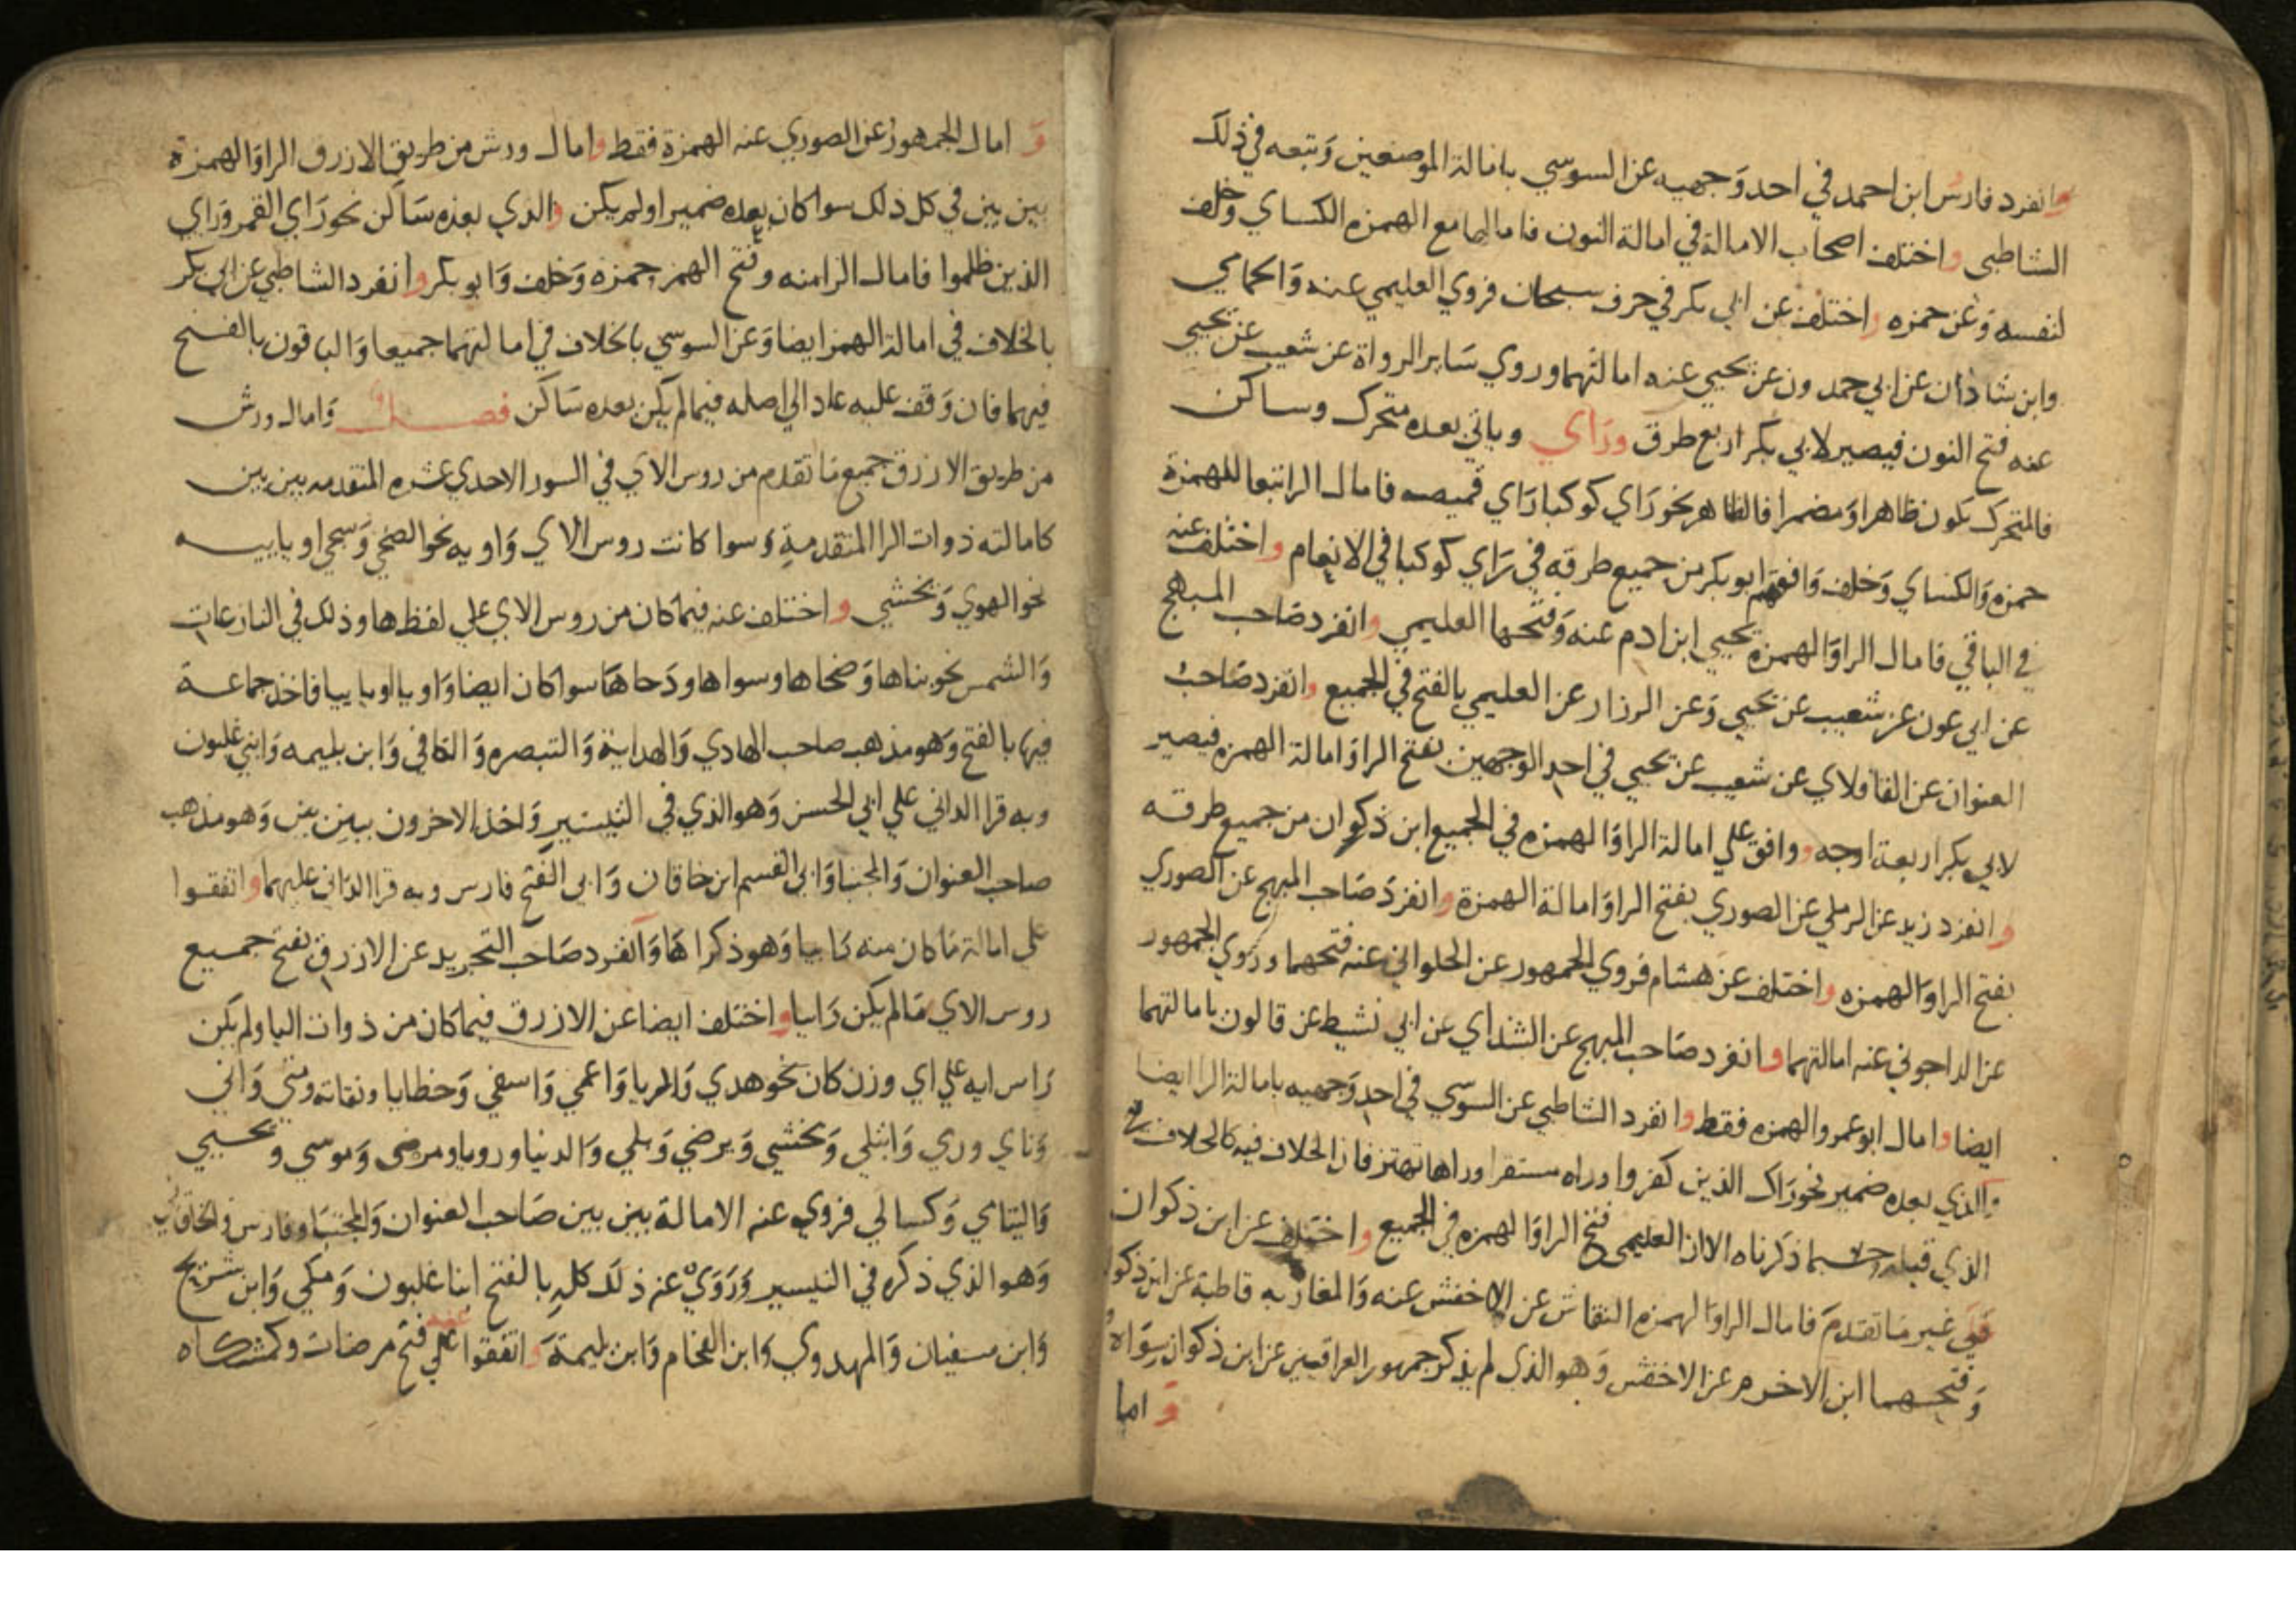 وانفرد فارس ابن احمد في احد وجهيه عن السوسي بامالة الموضعين وتبعه في ذلك
الشاطبي واختلف اصحاب الامالة في امالة النون فامالها مع الهمزه الكساي وخلف
لنفسه وعن حمزه واختلف عن ابي بكر في حرف سبحان فروي العليمي عنه والحمامي
وابن شاذان عن ابي حمدون عن يحيي عنه امالتهما وروي ساير الرواة عن شعيب عن يحيي
عنه فتح النون فيصير لابي بكر اربع طرق وراي وياتي بعده متحرك وساكن
فالمتحرك يكون ظاهرا ومضمرا فالظاهر نحو راي كوكبا راي قميصه فامال الرا تبعا للهمزة
حمزه والكساي وخلف وافقهم ابو بكر من جميع طرقه في راي كوكبا في الانعام واختلف عنه
في الباقي فامال الرا والهمزة يحيي ابن ادم عنه وفتحها العليمي وانفرد صاحب المبهج
عن ابي عون عن شعيب عن يحيي وعن الرزاز عن العليمي بالفتح في الجميع وانفرد صاحب
العنوان عن القافلاي عن شعيب عن يحيي في احد الوجهين بفتح الرا وامالة الهمزه فيصير
لابي بكر اربعة اوجه ووافق علي امالة الرا والهمزه في الجميع ابن ذكوان من جميع طرقه
وانفرد زيد عن الرملي عن الصوري بفتح الرا وامالة الهمزة وانفرد صاحب المبهج عن الصوري
بفتح الرا والهمزه واختلف عن هشام فروي الجمهور عن الحلواني عنه فتحهما وروي الجمهور
عن الداجوني عنه امالتهما وانفرد صاحب المبهج عن الشذاي عن ابي نشيط عن قالون بامالتهما
ايضا وامال ابو عمرو الهمزه فقط وانفرد الشاطبي عن السوسي في احد وجهيه بامالة الرا ايضا
والذي بعده ضمير نحو راك الذين كفروا وراه مستقرا وراها تهتز فان الخلاف فيه كالخلاف في
الذي قبله حسبما ذكرناه الا ان العليمي فتح الرا والهمزه في الجميع واختلف عن ابن ذكوان
في غير ما تقدم فامال الرا والهمزه النقاش عن الاخفش عنه والمغاربه قاطبة عن ابن ذكوان
وفتحهما ابن الاخرم عن الاخفش وهو الذي لم يذكر جمهور العراقيين عن ابن ذكوان سواه
و اما
و امال الجمهور عن الصوري عنه الهمزة فقط وامال ورش من طريق الازرق الرا والهمزة
بين بين في كل ذلك سوا كان بعده ضمير او لم يكن والذي بعده ساكن نحو راي القمر وراي
الذين ظلموا فامال الرا منه وفتح الهمز حمزه وخلف وابو بكر وانفرد الشاطبي عن ابي بكر
بالخلاف في امالة الهمز ايضا وعن السوسي بالخلاف في امالتهما جميعا والباقون بالفتح
فيهما فان وقف عليه عاد الي اصله فيما لم يكن بعده ساكن فصل وامال ورش
من طريق الازرق جميع ما تقدم من روس الاي في السور الاحدي عشره المتقدمه بين بين
كامالته ذوات الرا المتقدمة وسوا كانت روس الاي واويه نحو الضحي وسجي او ياييه
نحو الهوي ويخشي واختلف عنه فيما كان من روس الاي علي لفظ ها وذلك في النازعات
والشمس نحو بناها وضحاها وسواها ودحاها سوا كان ايضا واويا او ياييا فاخذ جماعة
فيها بالفتح وهو مذهب صاحب الهادي والهداية والتبصره والكافي وابن بليمه وابني غلبون
وبه قرا الداني علي ابي الحسن وهو الذي في التيسير واخذ الاخرون ببين بين وهو مذهب
صاحب العنوان والمجتبا وابي القسم ابن خاقان وابي الفتح فارس وبه قرا الداني عليهما واتفقوا
علي امالة ما كان منه راييا وهو ذكراها وانفرد صاحب التجريد عن الازرق بفتح جميع
روس الاي ما لم يكن راييا واختلف ايضا عن الازرق فيما كان من ذوات اليا ولم يكن
راس ايه علي اي وزن كان نحو هدي والمريا واعمي واسفي وخطايا وتقاته ومتي واني
وناي وري وابتلي ويخشي ويرضي وبلي والدنيا ورويا ومرضى وموسي ويحيي
واليتامي وكسالي فروي عنه الامالة بين بين صاحب العنوان والمجتبا وفارس والخاقاني
وهو الذي ذكره في التيسير وروي عنه ذلك كله بالفتح ابنا غلبون ومكي وابن شريح
وابن سفيان والمهدوي وابن الفحام وابن بليمة واتفقوا عنه علي فتح مرضات وكمشكاه